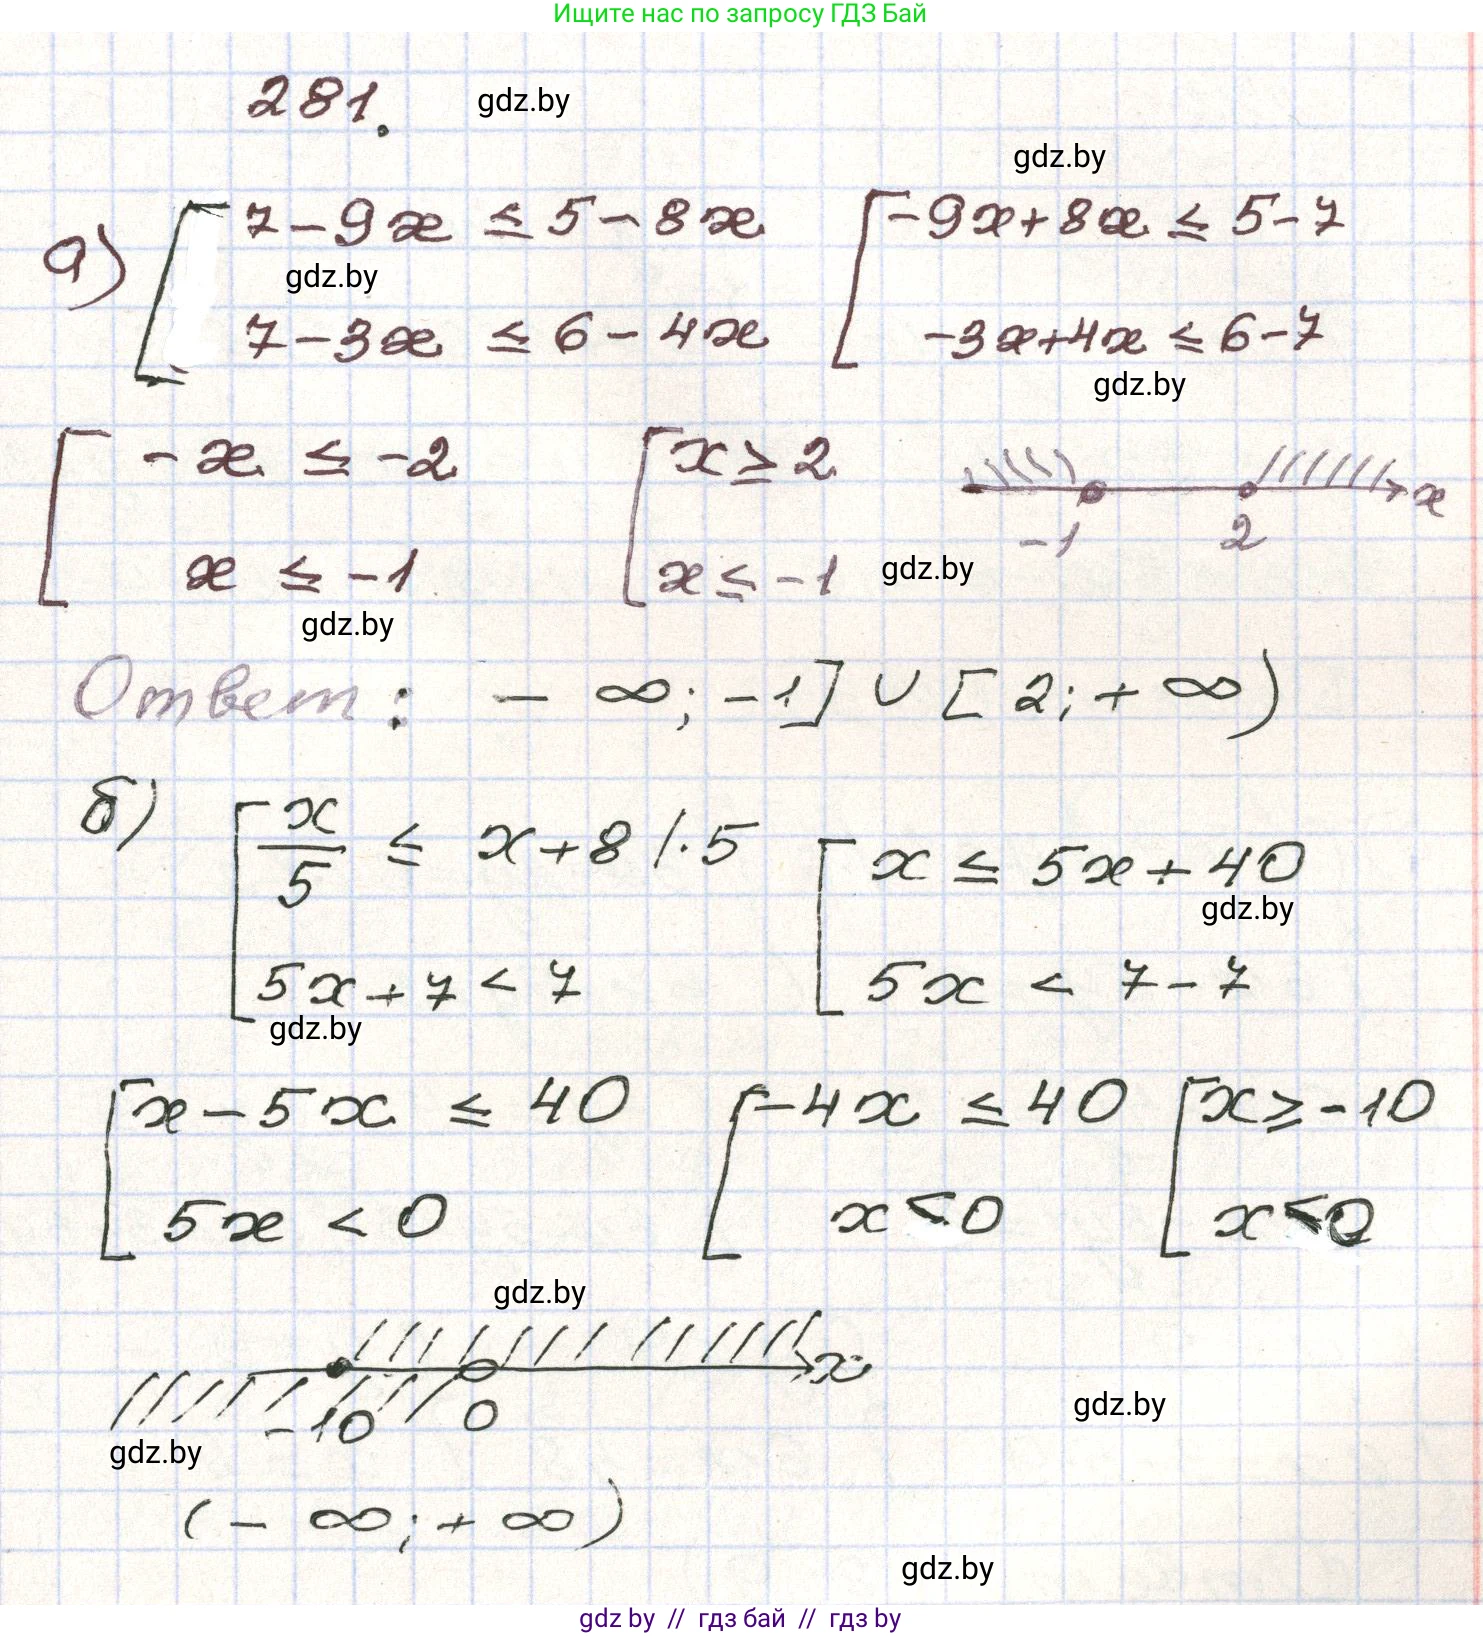 Ищите нас по запросу ГДЗ Бай
281. gdz.by
gdz.by
а) [ 7 - 9x ≤ 5 - 8x [ -9x + 8x ≤ 5 - 7
gdz.by
7 - 3x ≤ 6 - 4x -3x + 4x ≤ 6 - 7
gdz.by
[ -x ≤ -2 [ x ≥ 2 x
-1 2
x ≤ -1 x ≤ -1 gdz.by
gdz.by
Ответ: - ∞; -1] ∪ [2; + ∞)
б) [ x/5 ≤ x + 8 /·5 [ x ≤ 5x + 40
gdz.by
5x + 7 < 7 5x < 7 - 7
gdz.by
[ x - 5x ≤ 40 [ -4x ≤ 40 [ x ≥ -10
5x < 0 x < 0 x < 0
gdz.by
x
-10 0 gdz.by
gdz.by
(- ∞; + ∞)
gdz.by
gdz by // гдз бай // гдз by